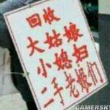 回收
大姑娘
小媳妇
二手老娘们
GAMERSKY